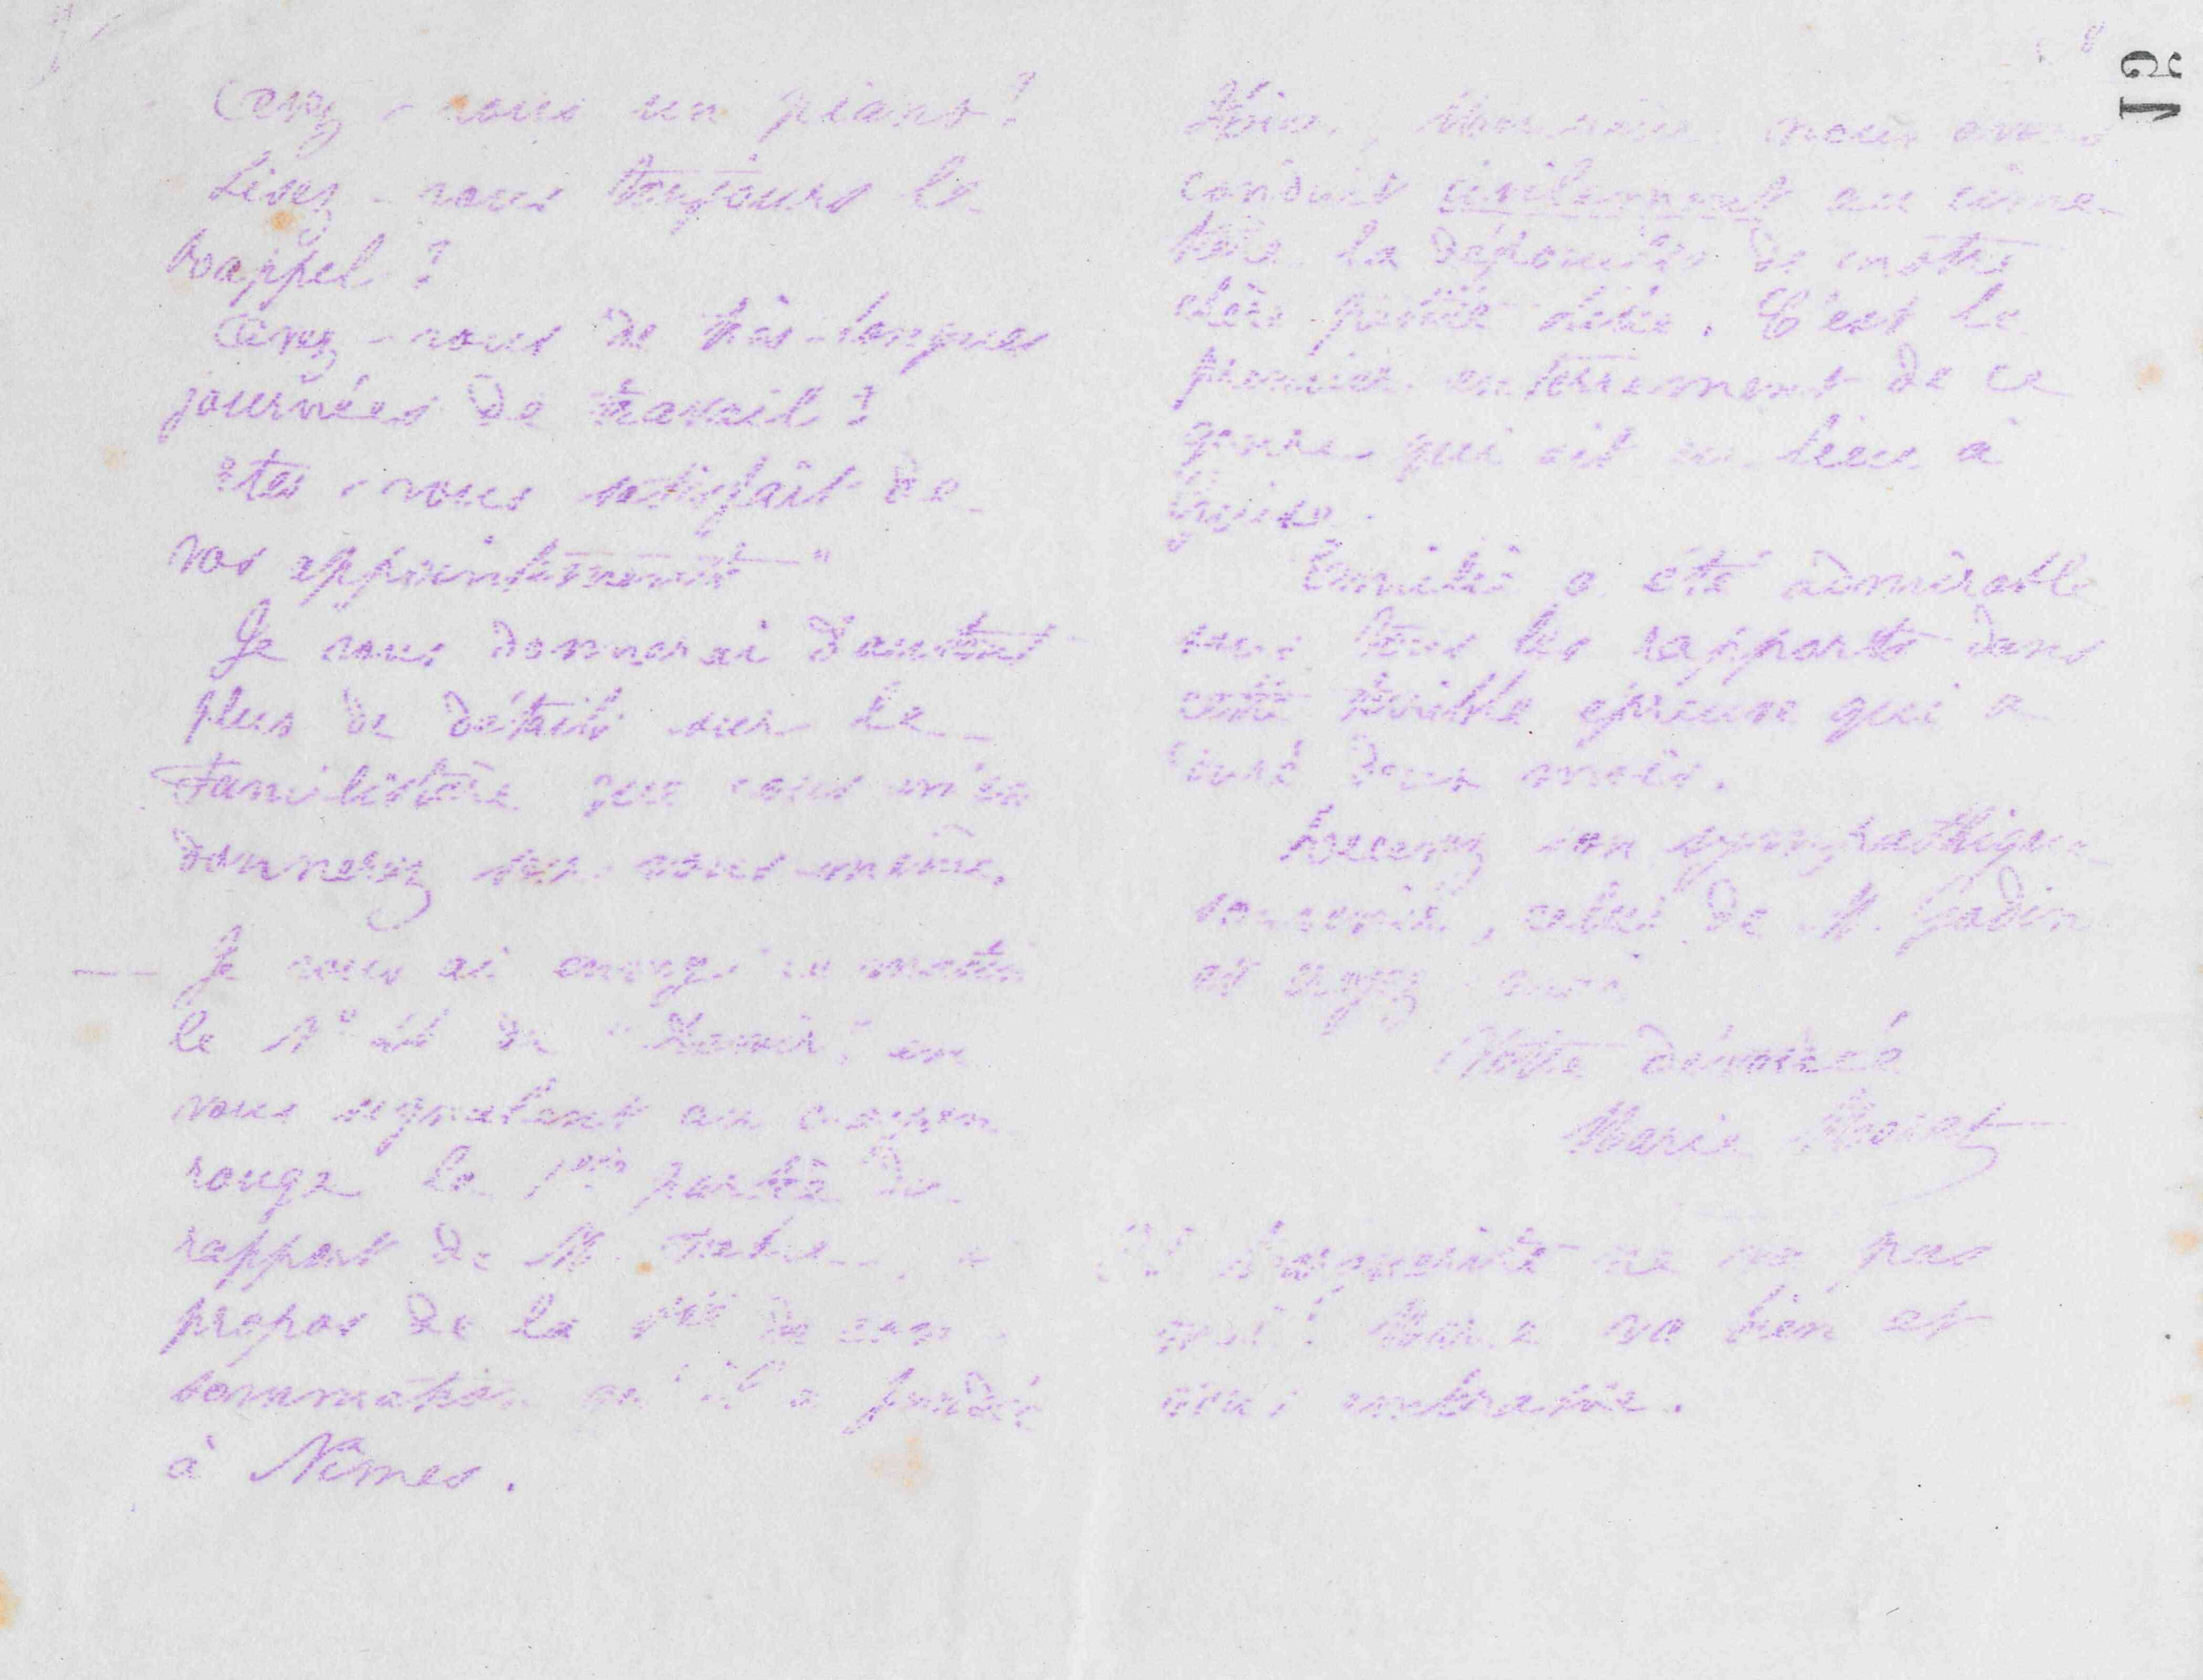 Avez-vous un piano?
Lisez-vous toujours le
Rappel?
Avez-vous de très-longues
journées de travail?
Êtes-vous satisfait de
vos appointements
Je vous donnerai d'autant
plus de détails sur le
Familistère que vous m'en
donnerez sur vous-même.
Je vous ai envoyé ce matin
le N° de "Devoir" en
vous signalant au crayon
rouge la 1ère partie du
rapport de M. à
propos de la Sté de con-
sommation qu'il a fondée
à Nîmes.
51
Hier, nous avons
conduit civilement au cime-
tière la dépouille de notre
chère petite. C'est le
premier enterrement de ce
genre qui ait eu lieu à
Guise.
Emilie a été admirable
sous tous les rapports dans
cette terrible épreuve qui a
duré deux mois.
Recevez son sympathique
souvenir, celui de M. Godin
et croyez-moi
Votre dévouée
Marie Moret
Marguerite ne va pas
mal! va bien et
vous embrasse.